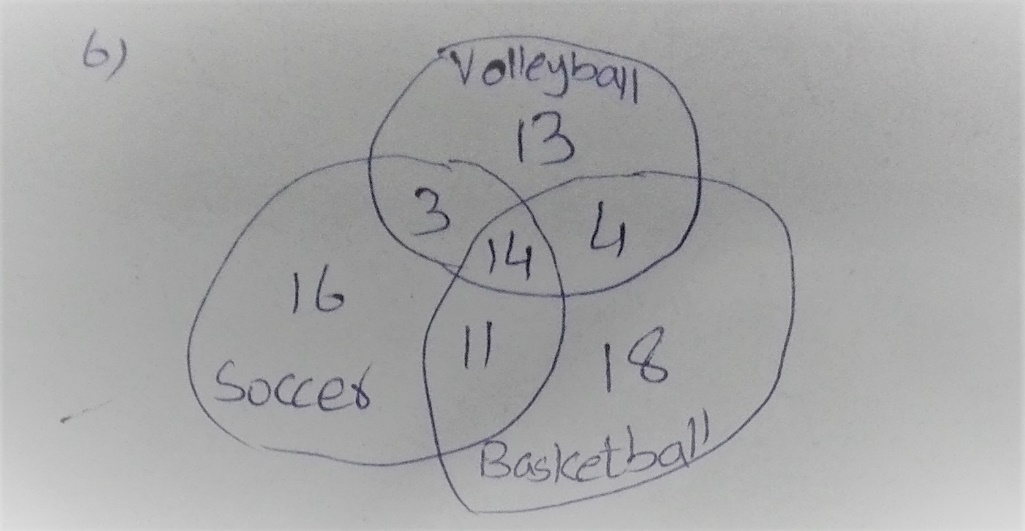 6)
Volleyball
13
3
14
4
16
11
18
Soccer
Basketball